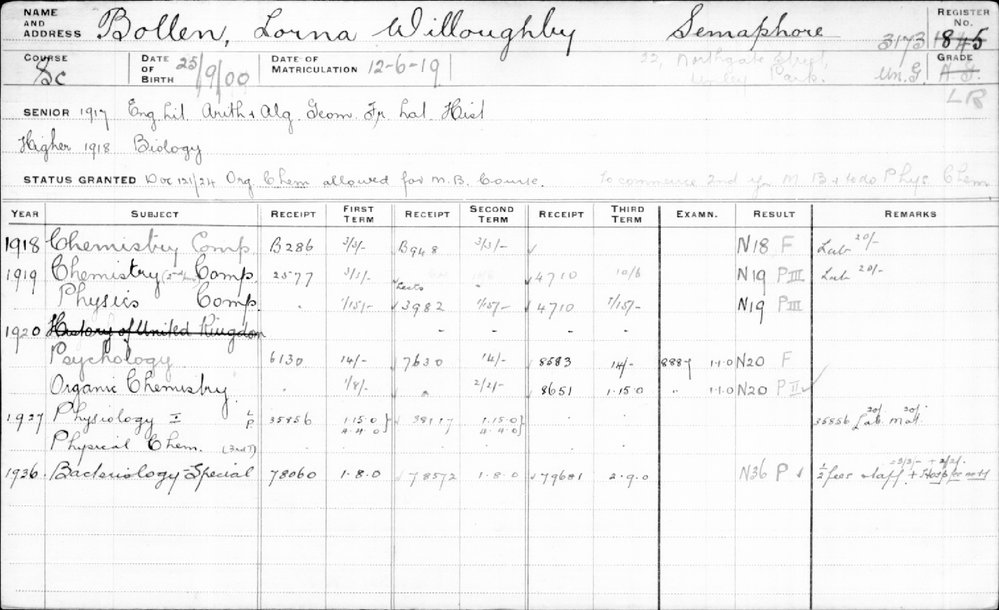 NAME AND ADDRESS Bollen, Lorna Willoughby Semaphore REGISTER No. 845 3173
COURSE Sc DATE OF BIRTH 25/9/00 DATE OF MATRICULATION 12-6-19 22, Northgate Street, Unley Park. Un.G. GRADE A.G.
LR
SENIOR 1917 Eng. Lit Arith & Alg Geom Fr Lat Hist
Higher 1918 Biology
STATUS GRANTED Doc 121/24 Org Chem allowed for M.B. Course. To commence 2nd yr M B & to do Phys. Chem
YEAR SUBJECT RECEIPT FIRST TERM RECEIPT SECOND TERM RECEIPT THIRD TERM EXAMN. RESULT REMARKS
1918 Chemistry Comp. B286 3/3/- B948 3/3/- ✓ N18 F Lab 20/-
1919 Chemistry Comp. 2577 3/3/- 4710 10/6 N19 P III Lab 20/-
Physics Comp. . 1/15/- 3982 1/15/- 4710 1/15/- N19 P III
1920 History of United Kingdom - -
Psychology 6130 14/- 7630 14/- 8583 14/- 8887 1.1.0 N20 F
Organic Chemistry . 1/8/- " 2/2/- 8651 1.15.0 " 1.1.0 N20 P II ✓
1927 Physiology I L P 35856 1.15.0 4.4.0 38117 1.15.0 4.4.0 . . 35856 Lab. 20/- mat. 20/-
Physical Chem. . .
1936 Bacteriology - Special 78060 1.8.0 78572 1.8.0 79681 2.9.0 N36 P ½ fees staff